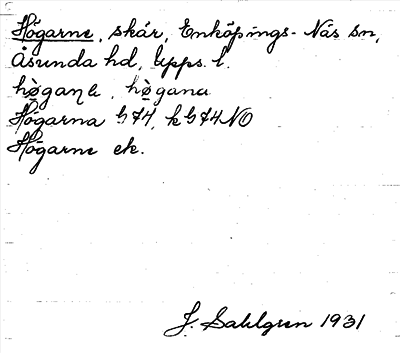 Högarne, skär, Enköpings-Näs sn,
Åsunda hd, Upps. l.
Högarna G74, k G74NO
Högarne ek.
J. Sahlgren 1931